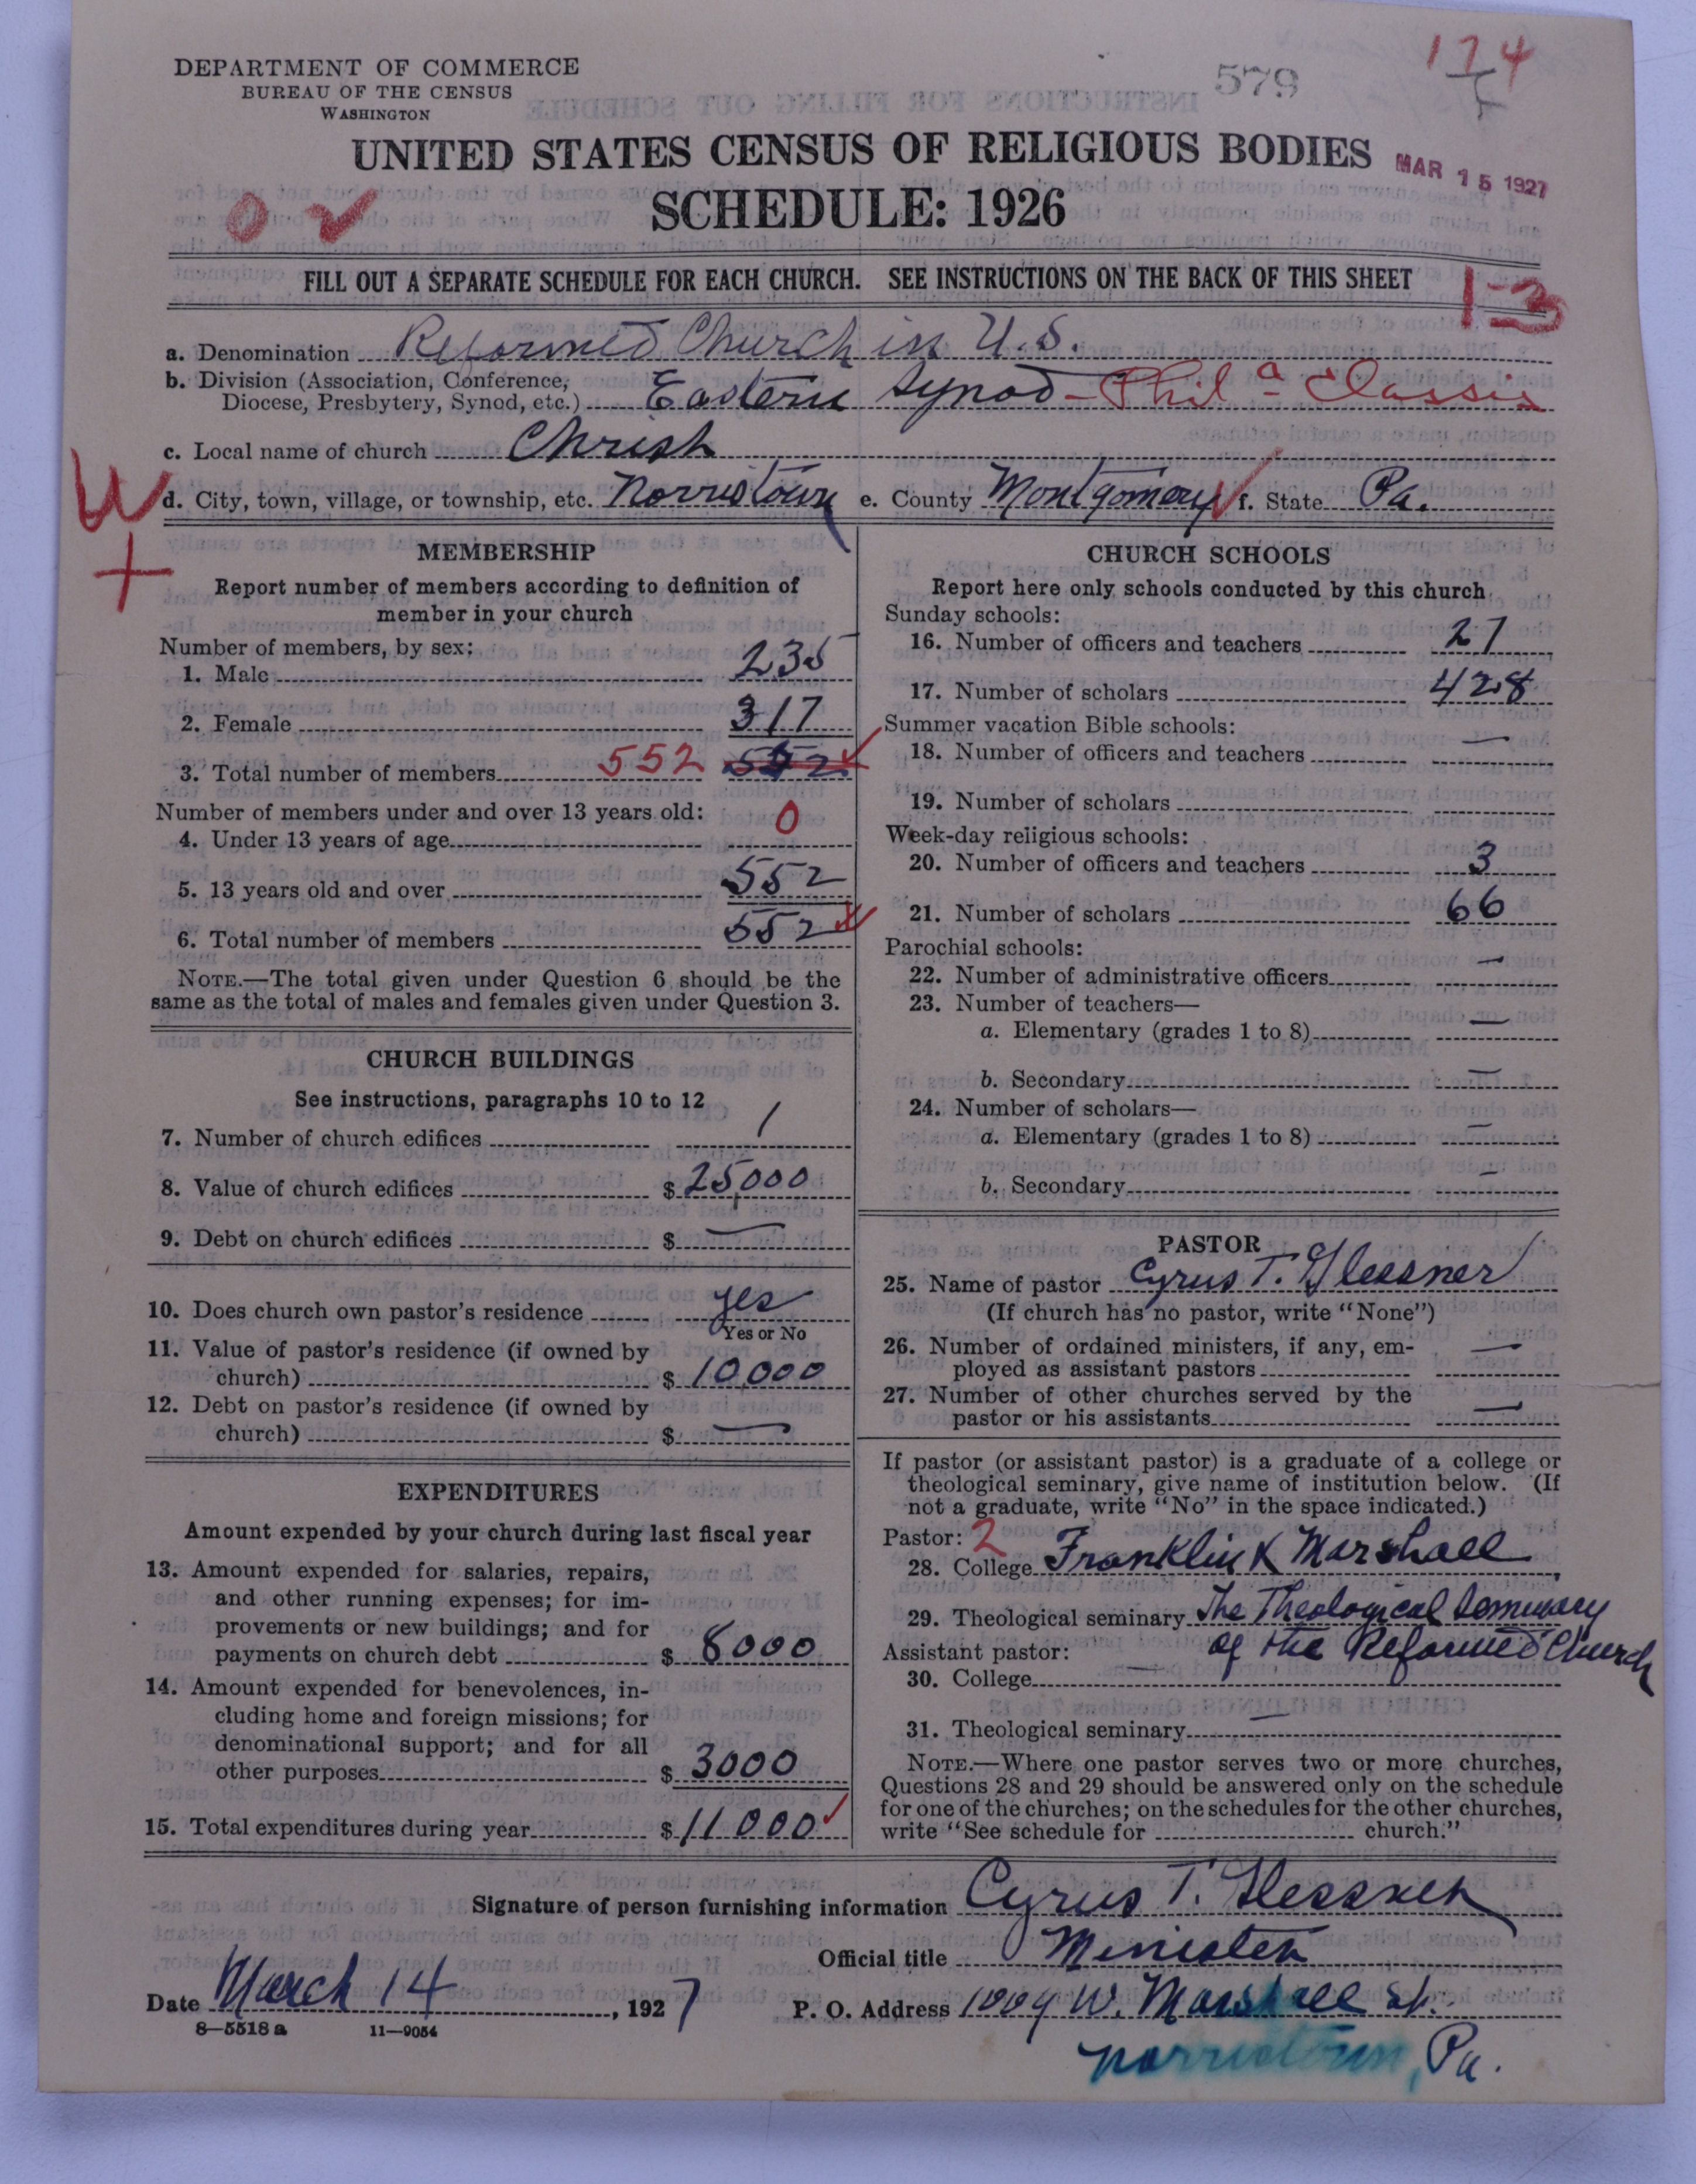 DEPARTMENT OF COMMERCE
BUREAU OF THE CENSUS
WASHINGTON
579
174
UNITED STATES CENSUS OF RELIGIOUS BODIES
MAR 15 1927
SCHEDULE: 1926
FILL OUT A SEPARATE SCHEDULE FOR EACH CHURCH. SEE INSTRUCTIONS ON THE BACK OF THIS SHEET
1-3
a. Denomination Reformed Church in U.S.
b. Division (Association, Conference,
Diocese, Presbytery, Synod, etc.) Eastern Synod - Phila - Classis
c. Local name of church Christ
d. City, town, village, or township, etc. Norristown e. County Montgomery f. State Pa.
MEMBERSHIP
Report number of members according to definition of
member in your church
Number of members, by sex:
1. Male 235
2. Female 317
3. Total number of members 552 552
Number of members under and over 13 years old:
4. Under 13 years of age 0
5. 13 years old and over 552
6. Total number of members 552
NOTE.—The total given under Question 6 should be the
same as the total of males and females given under Question 3.
CHURCH BUILDINGS
See instructions, paragraphs 10 to 12
7. Number of church edifices 1
8. Value of church edifices $ 25,000
9. Debt on church edifices $ —
10. Does church own pastor's residence yes
Yes or No
11. Value of pastor's residence (if owned by
church) $ 10,000
12. Debt on pastor's residence (if owned by
church) $ —
EXPENDITURES
Amount expended by your church during last fiscal year
13. Amount expended for salaries, repairs,
and other running expenses; for im-
provements or new buildings; and for
payments on church debt $ 8000
14. Amount expended for benevolences, in-
cluding home and foreign missions; for
denominational support; and for all
other purposes $ 3000
15. Total expenditures during year $ 11000
CHURCH SCHOOLS
Report here only schools conducted by this church
Sunday schools:
16. Number of officers and teachers 27
17. Number of scholars 428
Summer vacation Bible schools:
18. Number of officers and teachers —
19. Number of scholars
Week-day religious schools:
20. Number of officers and teachers 3
21. Number of scholars 66
Parochial schools:
22. Number of administrative officers —
23. Number of teachers—
a. Elementary (grades 1 to 8) —
b. Secondary —
24. Number of scholars—
a. Elementary (grades 1 to 8) —
b. Secondary —
PASTOR
25. Name of pastor Cyrus T. Glessner
(If church has no pastor, write "None")
26. Number of ordained ministers, if any, em-
ployed as assistant pastors —
27. Number of other churches served by the
pastor or his assistants —
If pastor (or assistant pastor) is a graduate of a college or
theological seminary, give name of institution below. (If
not a graduate, write "No" in the space indicated.)
Pastor: 2
28. College Franklin & Marshall
29. Theological seminary The Theological Seminary
of the Reformed Church
Assistant pastor:
30. College —
31. Theological seminary —
NOTE.—Where one pastor serves two or more churches,
Questions 28 and 29 should be answered only on the schedule
for one of the churches; on the schedules for the other churches,
write "See schedule for church."
Signature of person furnishing information Cyrus T. Glessner
Official title Minister
Date March 14, 1927 P. O. Address 1009 W. Marshall St.
8—5518 a 11—9054
Norristown, Pa.